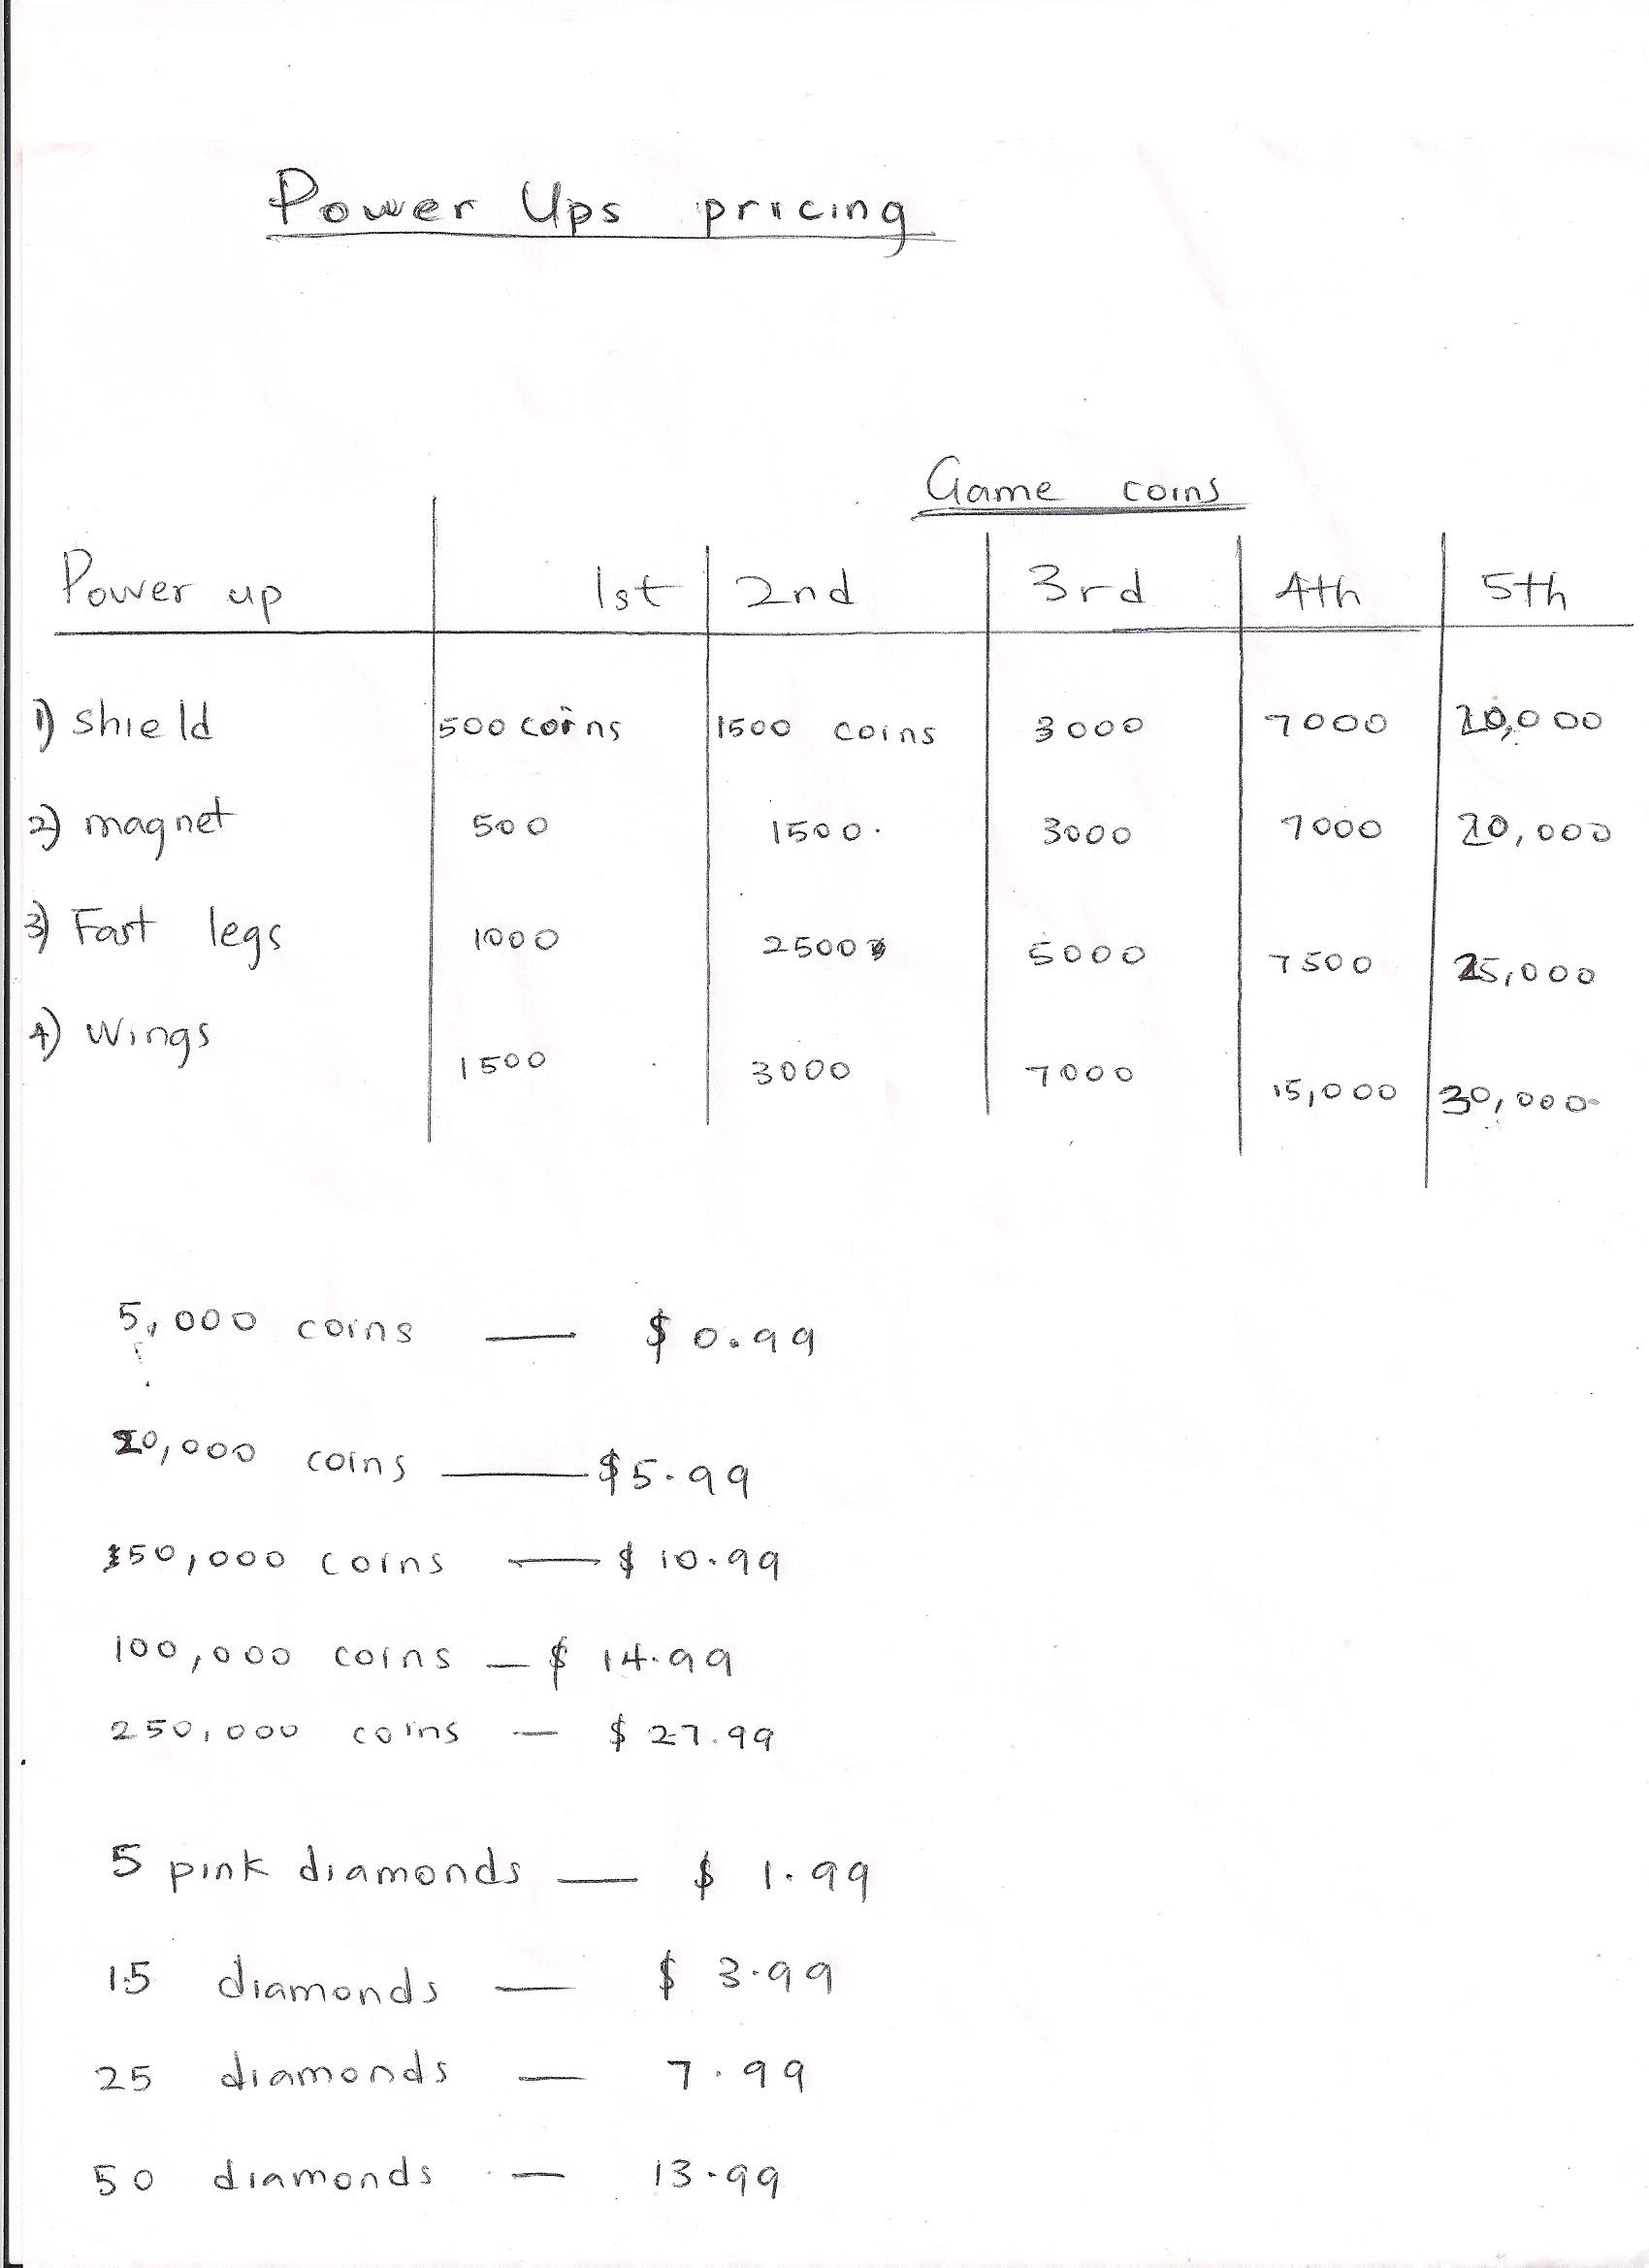 Power Ups pricing
Game coins
Power up 1st 2nd 3rd 4th 5th
1) shield 500 coins 1500 coins 3000 7000 20,000
2) magnet 500 1500. 3000 7000 20,000
3) Fast legs 1000 2500 5000 7500 25,000
4) Wings 1500 3000 7000 15,000 30,000
5,000 coins — $ 0.99
20,000 coins — $5.99
50,000 coins — $ 10.99
100,000 coins — $ 14.99
250,000 coins — $ 27.99
5 pink diamonds — $ 1.99
15 diamonds — $ 3.99
25 diamonds — 7.99
50 diamonds — 13.99